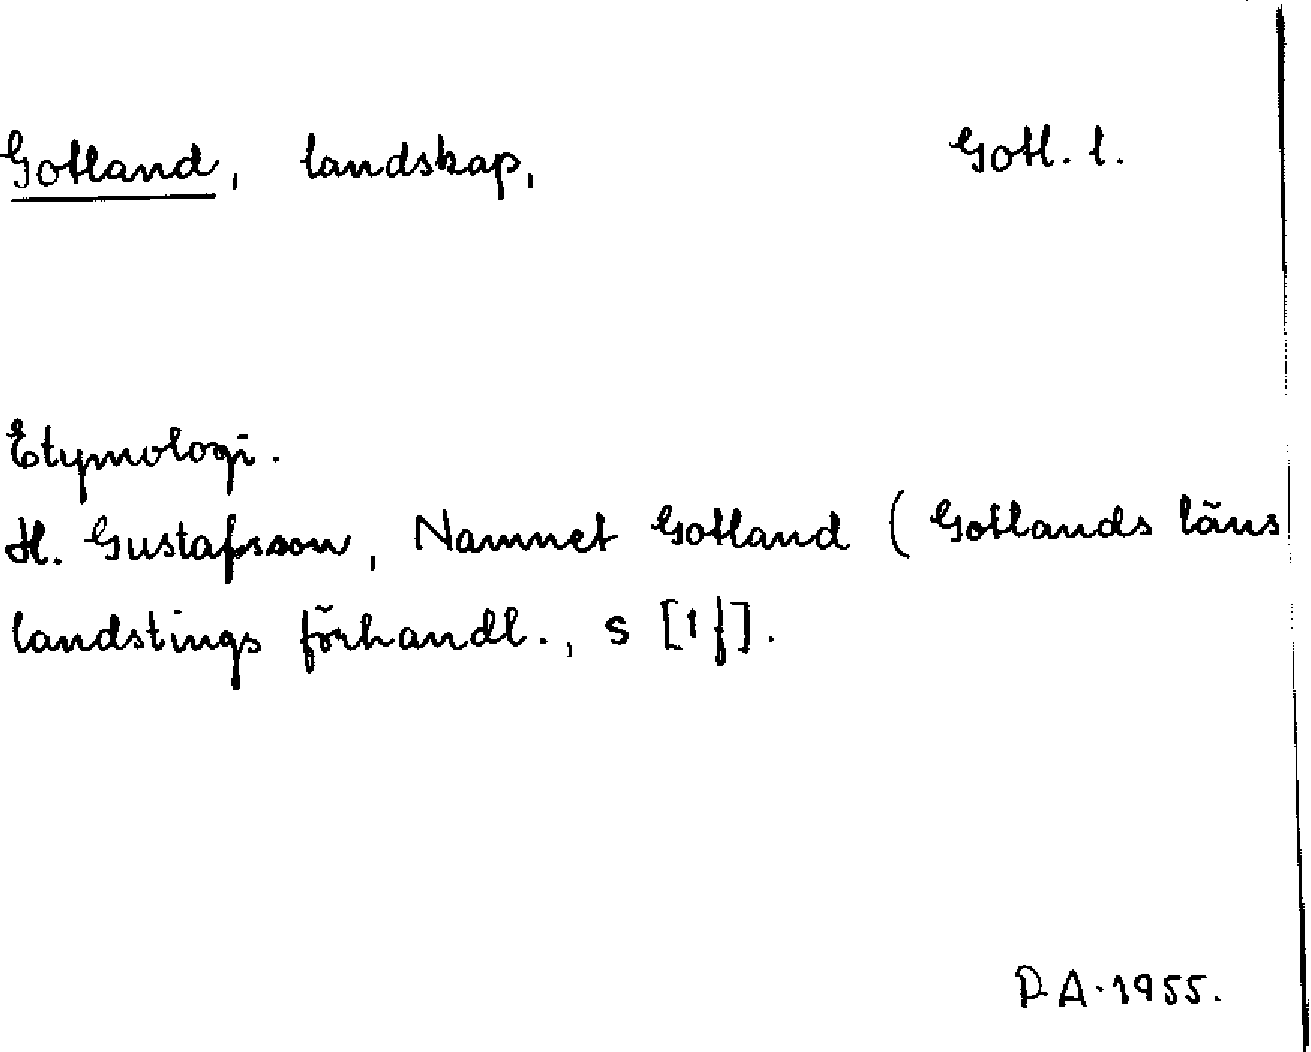 Gotland, landskap, Gotl. l.
Etymologi.
H. Gustafsson, Namnet Gotland (Gotlands läns
landstings förhandl., s [1f].
P.A. 1955.